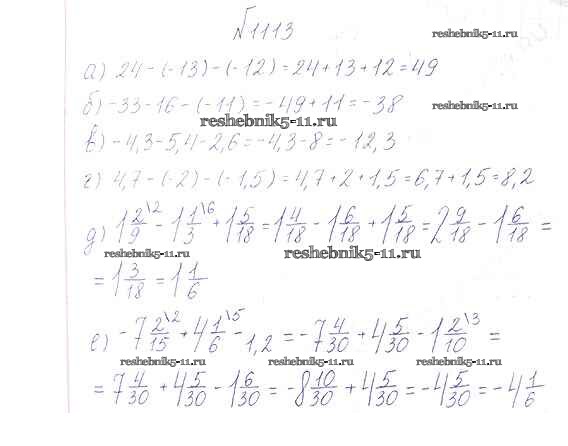 №1113
reshebnik5-11.ru
а) 24-(-13)-(-12)=24+13+12=49
б) -33-16-(-11)=-49+11=-38
reshebnik5-11.ru
reshebnik5-11.ru
в) -4,3-5,4-2,6=-4,3-8=-12,3
г) 4,7-(-2)-(-1,5)=4,7+2+1,5=6,7+1,5=8,2
д) 1 2/9 \2 - 1 1/3 \6 + 1 5/18 = 1 4/18 - 1 6/18 + 1 5/18 = 2 9/18 - 1 6/18 =
reshebnik5-11.ru
reshebnik5-11.ru
= 1 3/18 = 1 1/6
е) -7 2/15 \2 + 4 1/6 \5 - 1,2 = -7 4/30 + 4 5/30 - 1 2/10 \3 =
reshebnik5-11.ru
reshebnik5-11.ru
reshebnik5-11.ru
= 7 4/30 + 4 5/30 - 1 6/30 = -8 10/30 + 4 5/30 = -4 5/30 = -4 1/6